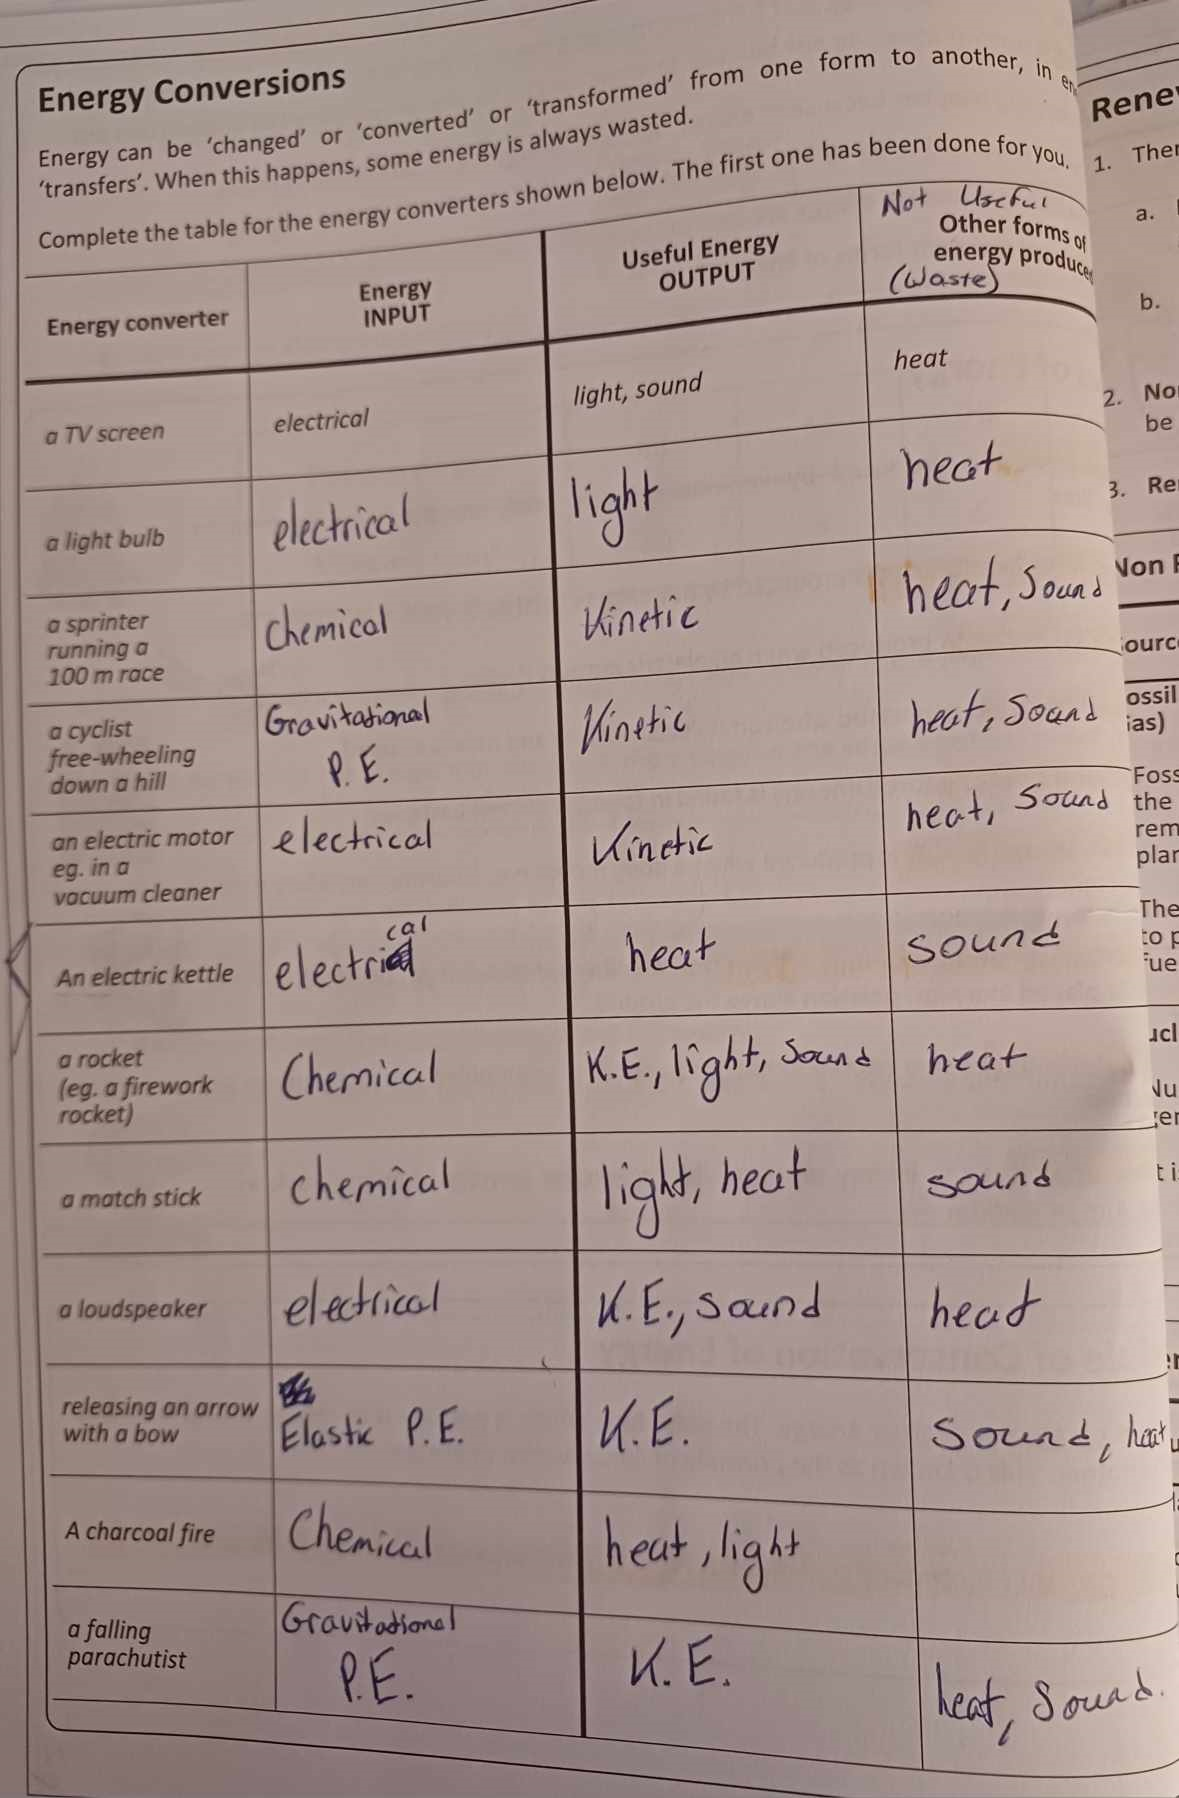 Energy Conversions
Energy can be ‘changed’ or ‘converted’ or ‘transformed’ from one form to another, in
‘transfers’. When this happens, some energy is always wasted.
Complete the table for the energy converters shown below. The first one has been done for you.
Energy converter
Energy
INPUT
Useful Energy
OUTPUT
Not Useful
Other forms of
energy produced
(Waste)
a TV screen
electrical
light, sound
heat
a light bulb
electrical
light
heat
a sprinter
running a
100 m race
Chemical
Kinetic
heat, Sound
a cyclist
free-wheeling
down a hill
Gravitational
P.E.
Kinetic
heat, Sound
an electric motor
eg. in a
vacuum cleaner
electrical
Kinetic
heat, Sound
An electric kettle
electrical
heat
sound
a rocket
(eg. a firework
rocket)
Chemical
K.E., light, Sound
heat
a match stick
chemical
light, heat
sound
a loudspeaker
electrical
K.E., sound
heat
releasing an arrow
with a bow
Elastic P.E.
K.E.
Sound, heat
A charcoal fire
Chemical
heat, light
a falling
parachutist
Gravitational
P.E.
K.E.
heat, Sound.
1.
a.
b.
2.
be
3.
the
The